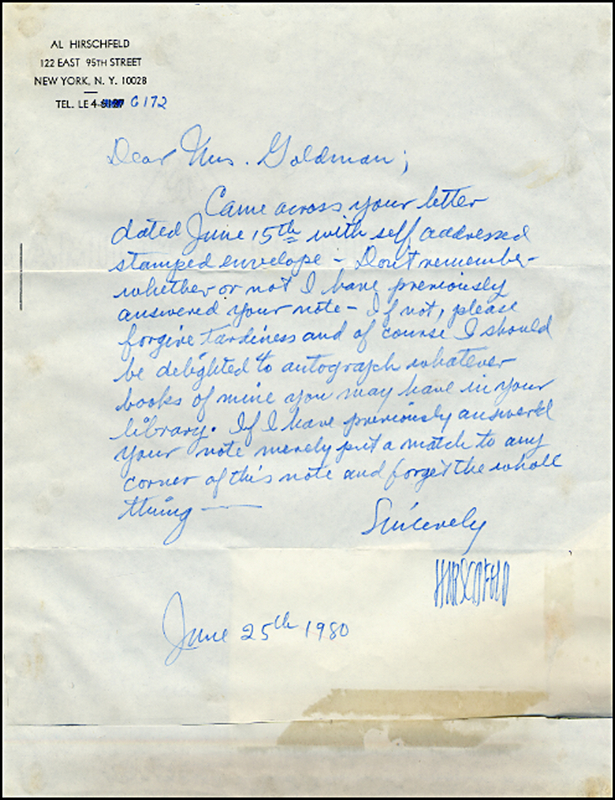 AL HIRSCHFELD
122 EAST 95TH STREET
NEW YORK, N. Y. 10028
TEL. LE 4- 6172
Dear Mrs. Goldman;
Came across your letter
dated June 15th with self addressed
stamped envelope - Don't remember -
whether or not I have previously
answered your note - If not, please
forgive tardiness and of course I should
be delighted to autograph whatever
books of mine you may have in your
library. If I have previously answered
your note merely put a match to any
corner of this note and forget the whole
thing —
Sincerely
HIRSCHFELD
June 25th 1980